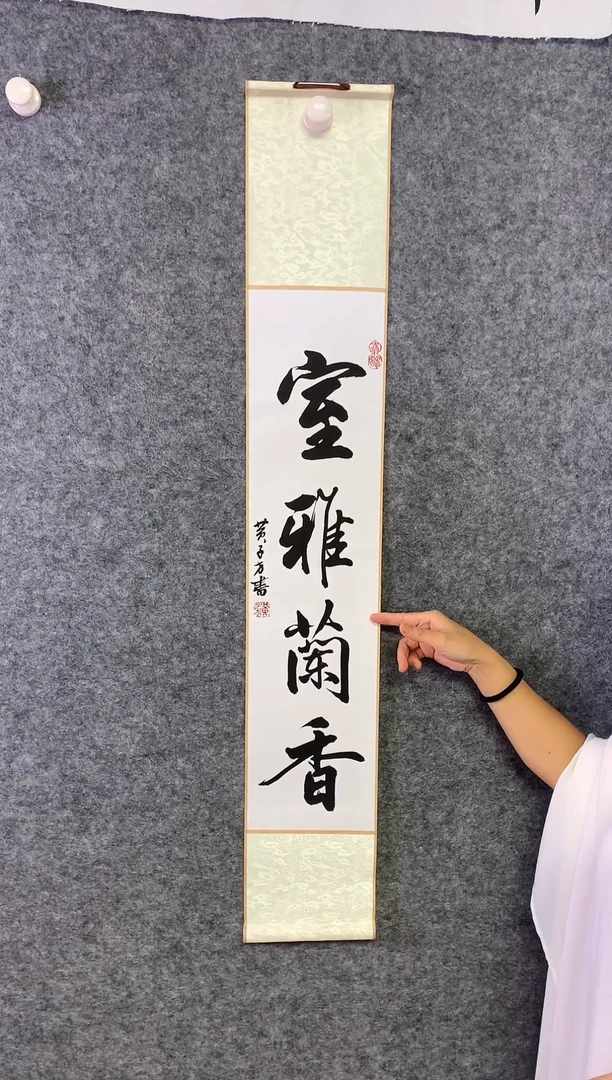 室雅蘭香
黄子方書